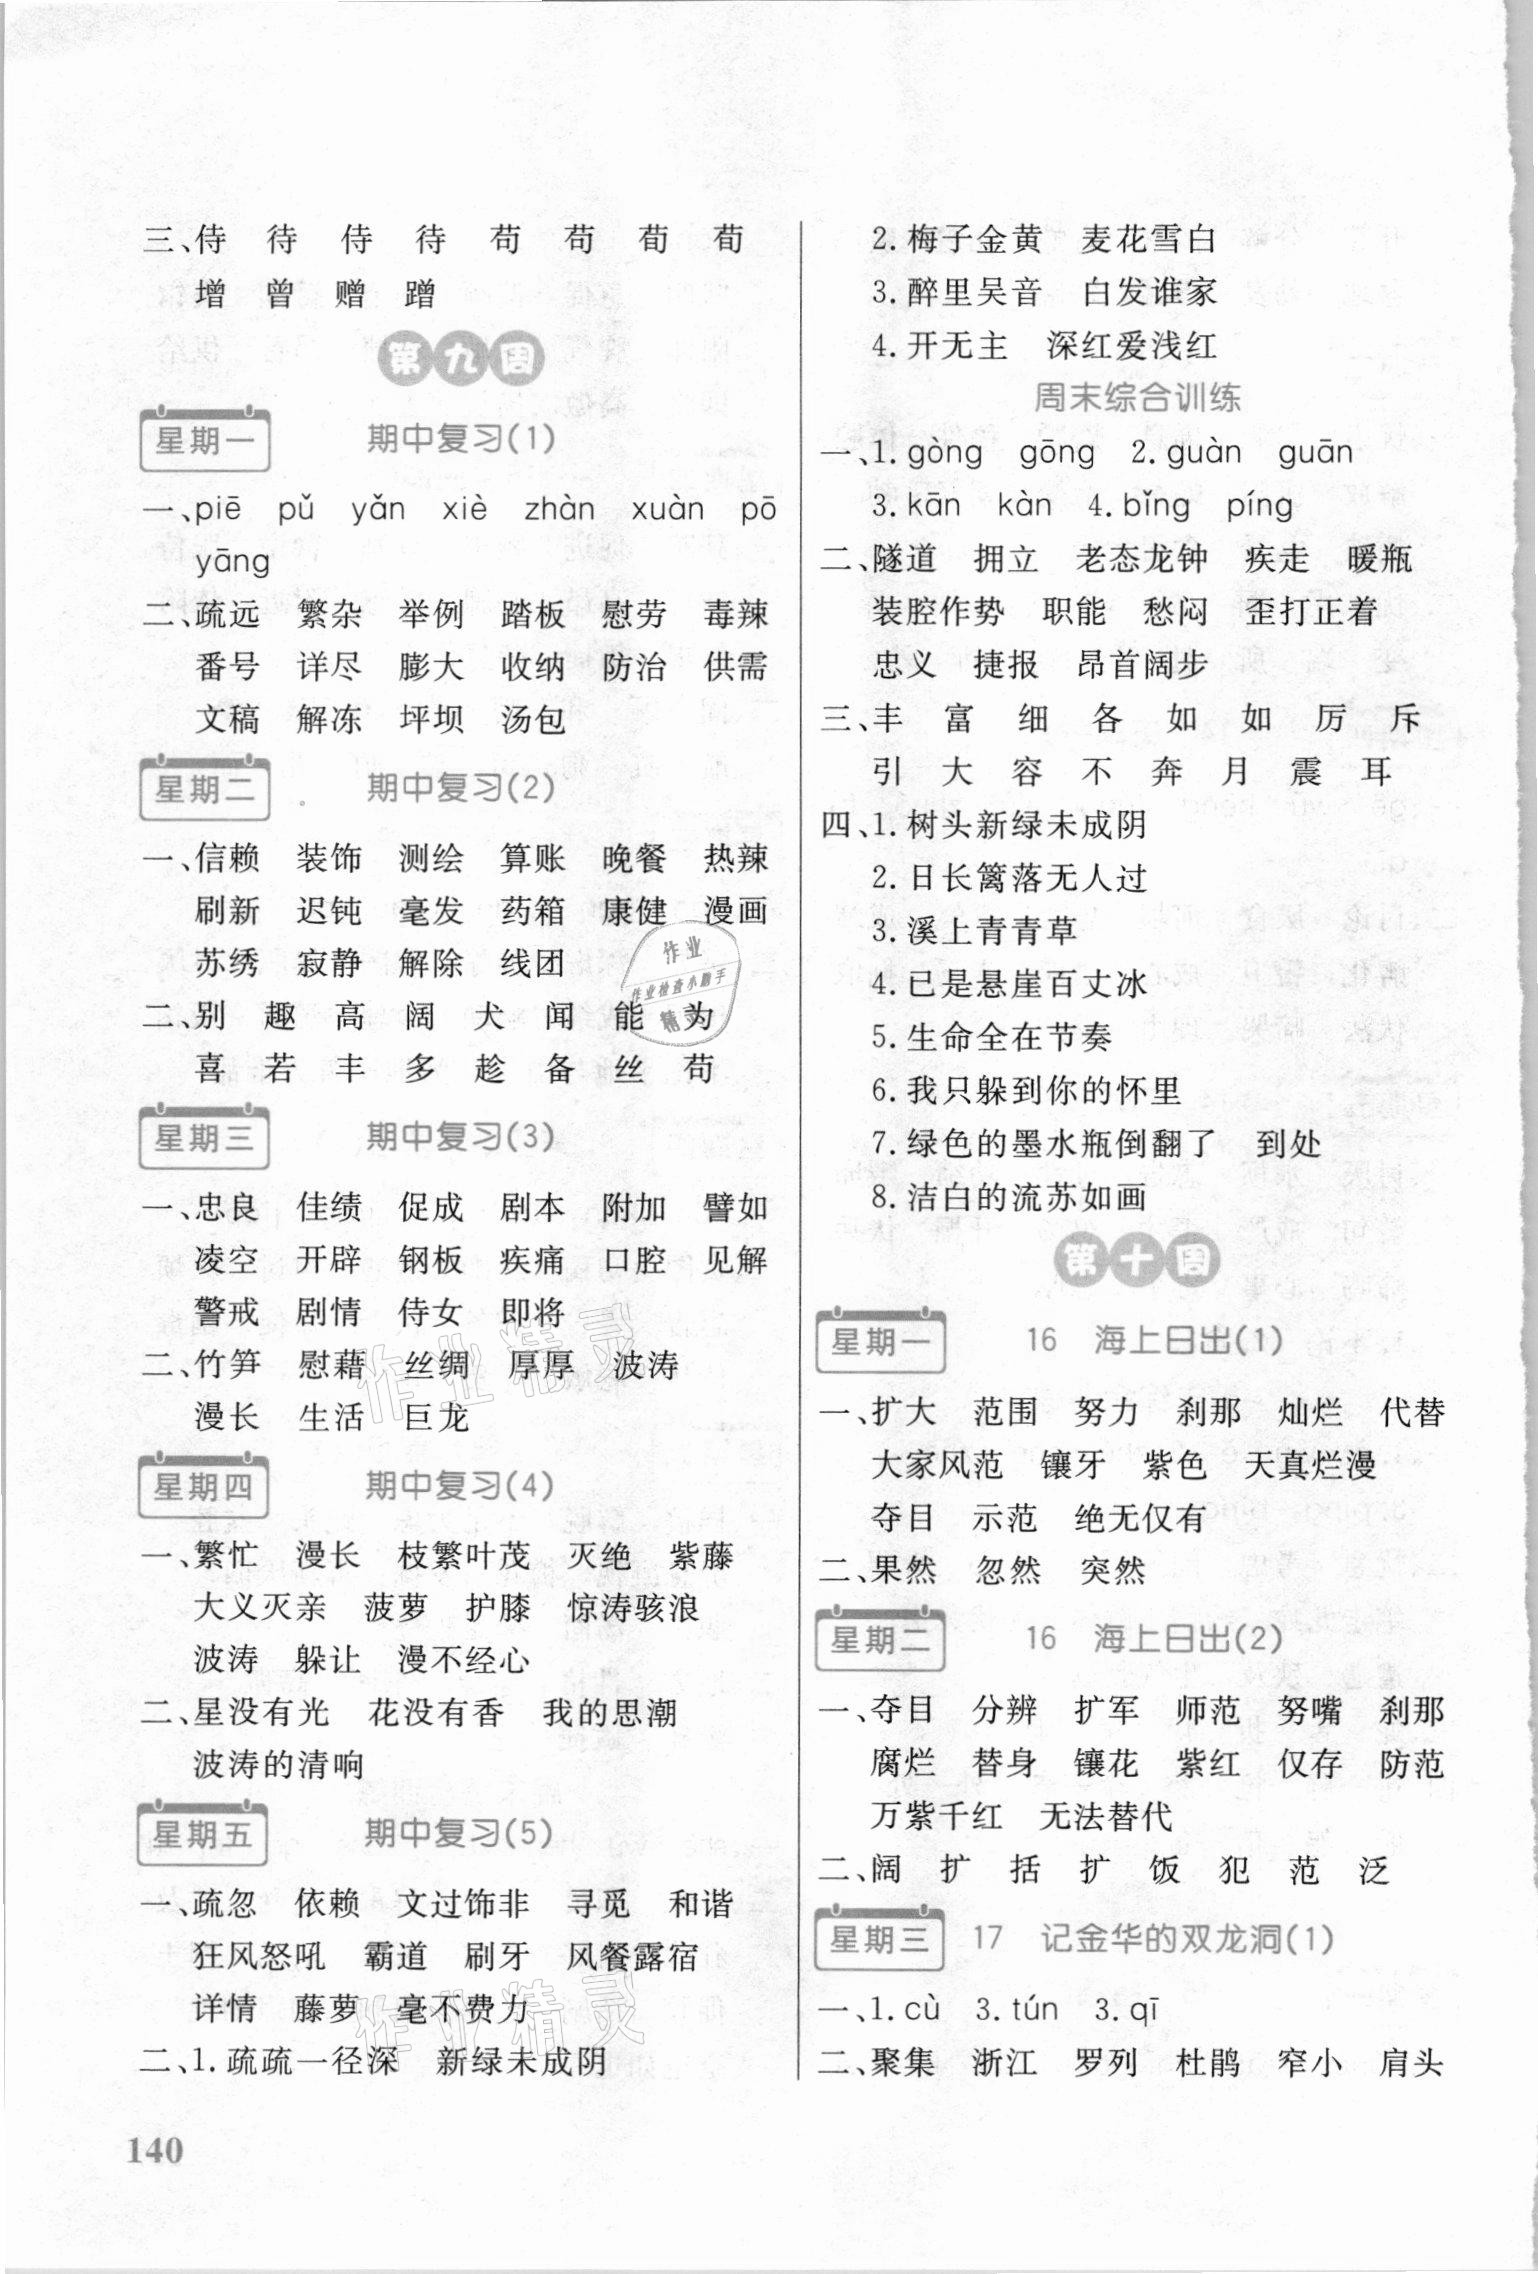 三、侍 待 侍 待 苟 苟 荀 荀
增 曾 赠 蹭
第九周
星期一 期中复习(1)
一、piē pǔ yǎn xiè zhàn xuàn pō
yāng
二、疏远 繁杂 举例 踏板 慰劳 毒辣
番号 详尽 膨大 收纳 防治 供需
文稿 解冻 坪坝 汤包
星期二 期中复习(2)
一、信赖 装饰 测绘 算账 晚餐 热辣
刷新 迟钝 毫发 药箱 康健 漫画
苏绣 寂静 解除 线团
二、别 趣 高 阔 犬 闻 能 为
喜 若 丰 多 趁 备 丝 苟
星期三 期中复习(3)
一、忠良 佳绩 促成 剧本 附加 譬如
凌空 开辟 钢板 疾痛 口腔 见解
警戒 剧情 侍女 即将
二、竹笋 慰藉 丝绸 厚厚 波涛
漫长 生活 巨龙
星期四 期中复习(4)
一、繁忙 漫长 枝繁叶茂 灭绝 紫藤
大义灭亲 菠萝 护膝 惊涛骇浪
波涛 躲让 漫不经心
二、星没有光 花没有香 我的思潮
波涛的清响
星期五 期中复习(5)
一、疏忽 依赖 文过饰非 寻觅 和谐
狂风怒吼 霸道 刷牙 风餐露宿
详情 藤萝 毫不费力
二、1.疏疏一径深 新绿未成阴
140
2.梅子金黄 麦花雪白
3.醉里吴音 白发谁家
4.开无主 深红爱浅红
周末综合训练
一、1.gòng gōng 2.guàn guān
3.kān kàn 4.bǐng píng
二、隧道 拥立 老态龙钟 疾走 暖瓶
装腔作势 职能 愁闷 歪打正着
忠义 捷报 昂首阔步
三、丰 富 细 各 如 如 厉 斥
引 大 容 不 奔 月 震 耳
四、1.树头新绿未成阴
2.日长篱落无人过
3.溪上青青草
4.已是悬崖百丈冰
5.生命全在节奏
6.我只躲到你的怀里
7.绿色的墨水瓶倒翻了 到处
8.洁白的流苏如画
第十周
星期一 16 海上日出(1)
一、扩大 范围 努力 刹那 灿烂 代替
大家风范 镶牙 紫色 天真烂漫
夺目 示范 绝无仅有
二、果然 忽然 突然
星期二 16 海上日出(2)
一、夺目 分辨 扩军 师范 努嘴 刹那
腐烂 替身 镶花 紫红 仅存 防范
万紫千红 无法替代
二、阔 扩 括 扩 饭 犯 范 泛
星期三 17 记金华的双龙洞(1)
一、1.cù 3.tún 3.qī
二、聚集 浙江 罗列 杜鹃 窄小 肩头
作业
作业检查小助手
精灵
作业精灵
作业精灵